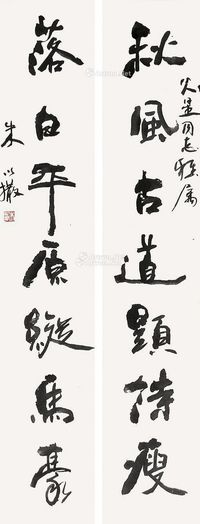 火星同志雅屬
秋風古道題詩瘦
落日平原縱馬豪
朱以撒